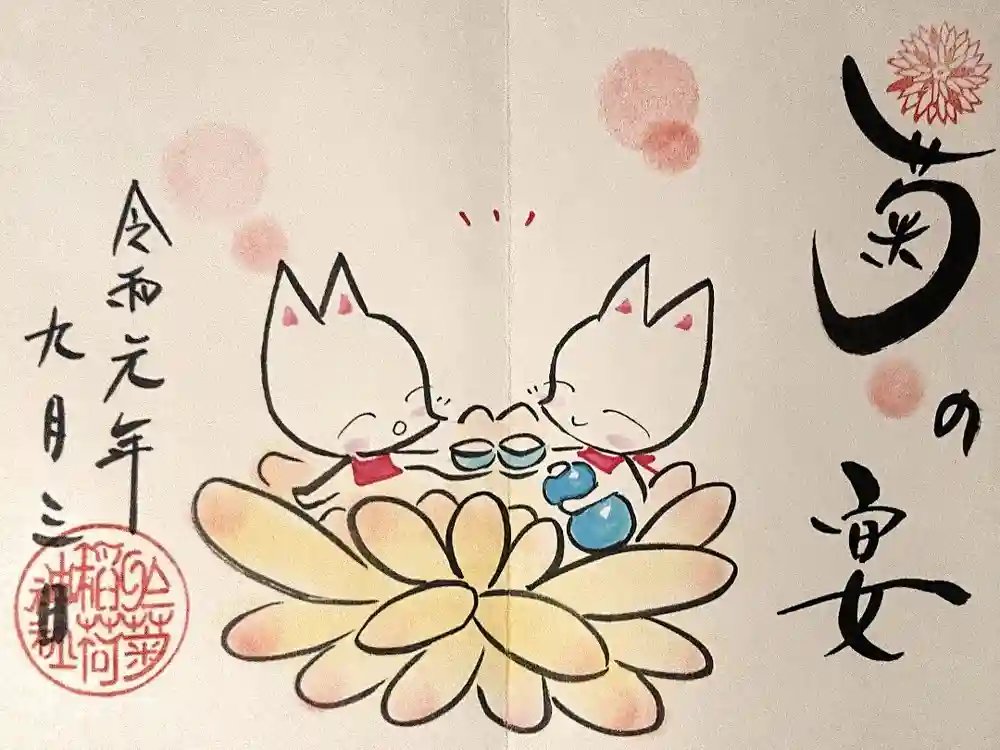 菊の宴
令和元年
九月三日
於菊
稲荷
神社